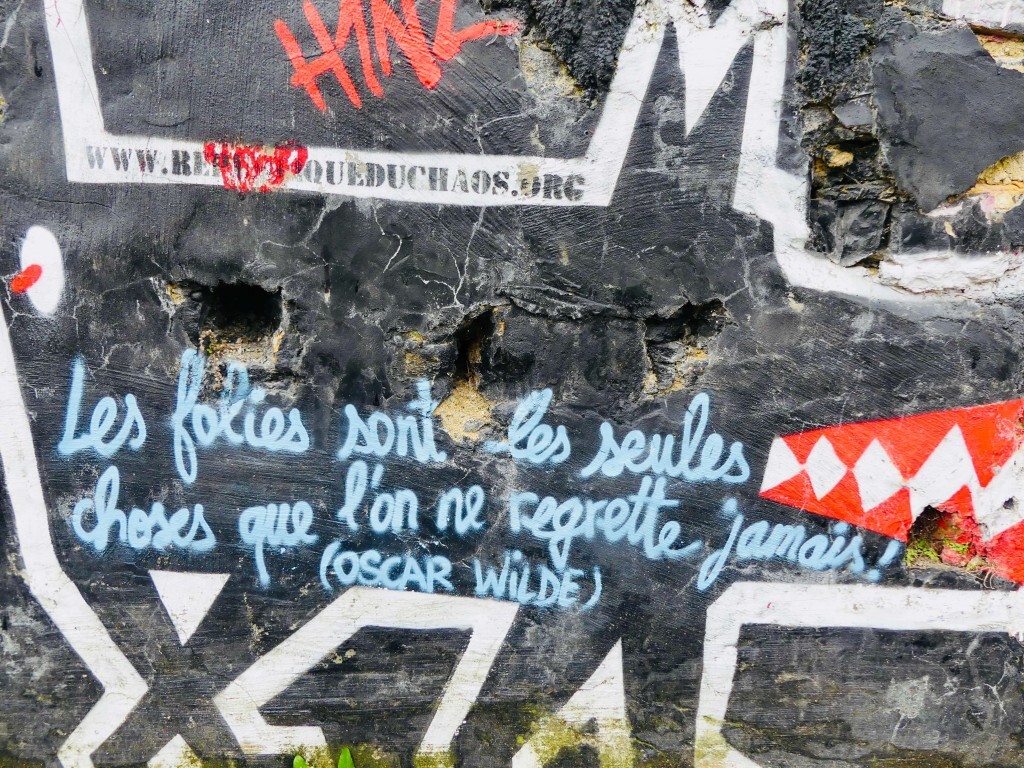 HMNZ
WWW.RE QUEDUCHAOS.ORG
Les folies sont les seules
choses que l'on ne regrette jamais!
(OSCAR WiLDE)